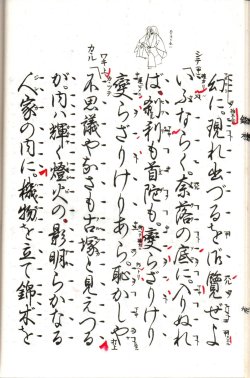 幻に。現れ出づるを御覽ぜよ
シテ
いふならく。奈落の底に。入りぬれ
ば。刹利も首陀も。變らざりけり
變らざりけりあら。恥かしや
ワキ
カル
不思議やなさも古塚と見えつる
が。内は輝く燈火の。影明らかなる
人家の内に。機物を立て錦木を